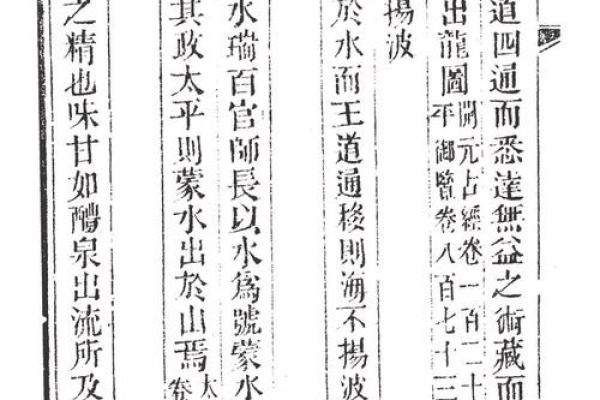 道四通而悉達無益之術藏而
出龍圖開元占經卷一百二十
平御覽卷八百七十三
揚波
於水而王道通則海不揚波
水瑞百官師長以水爲號蒙水
其政太平則蒙水出於山焉太
卷
之精也味甘如醴泉出流所及